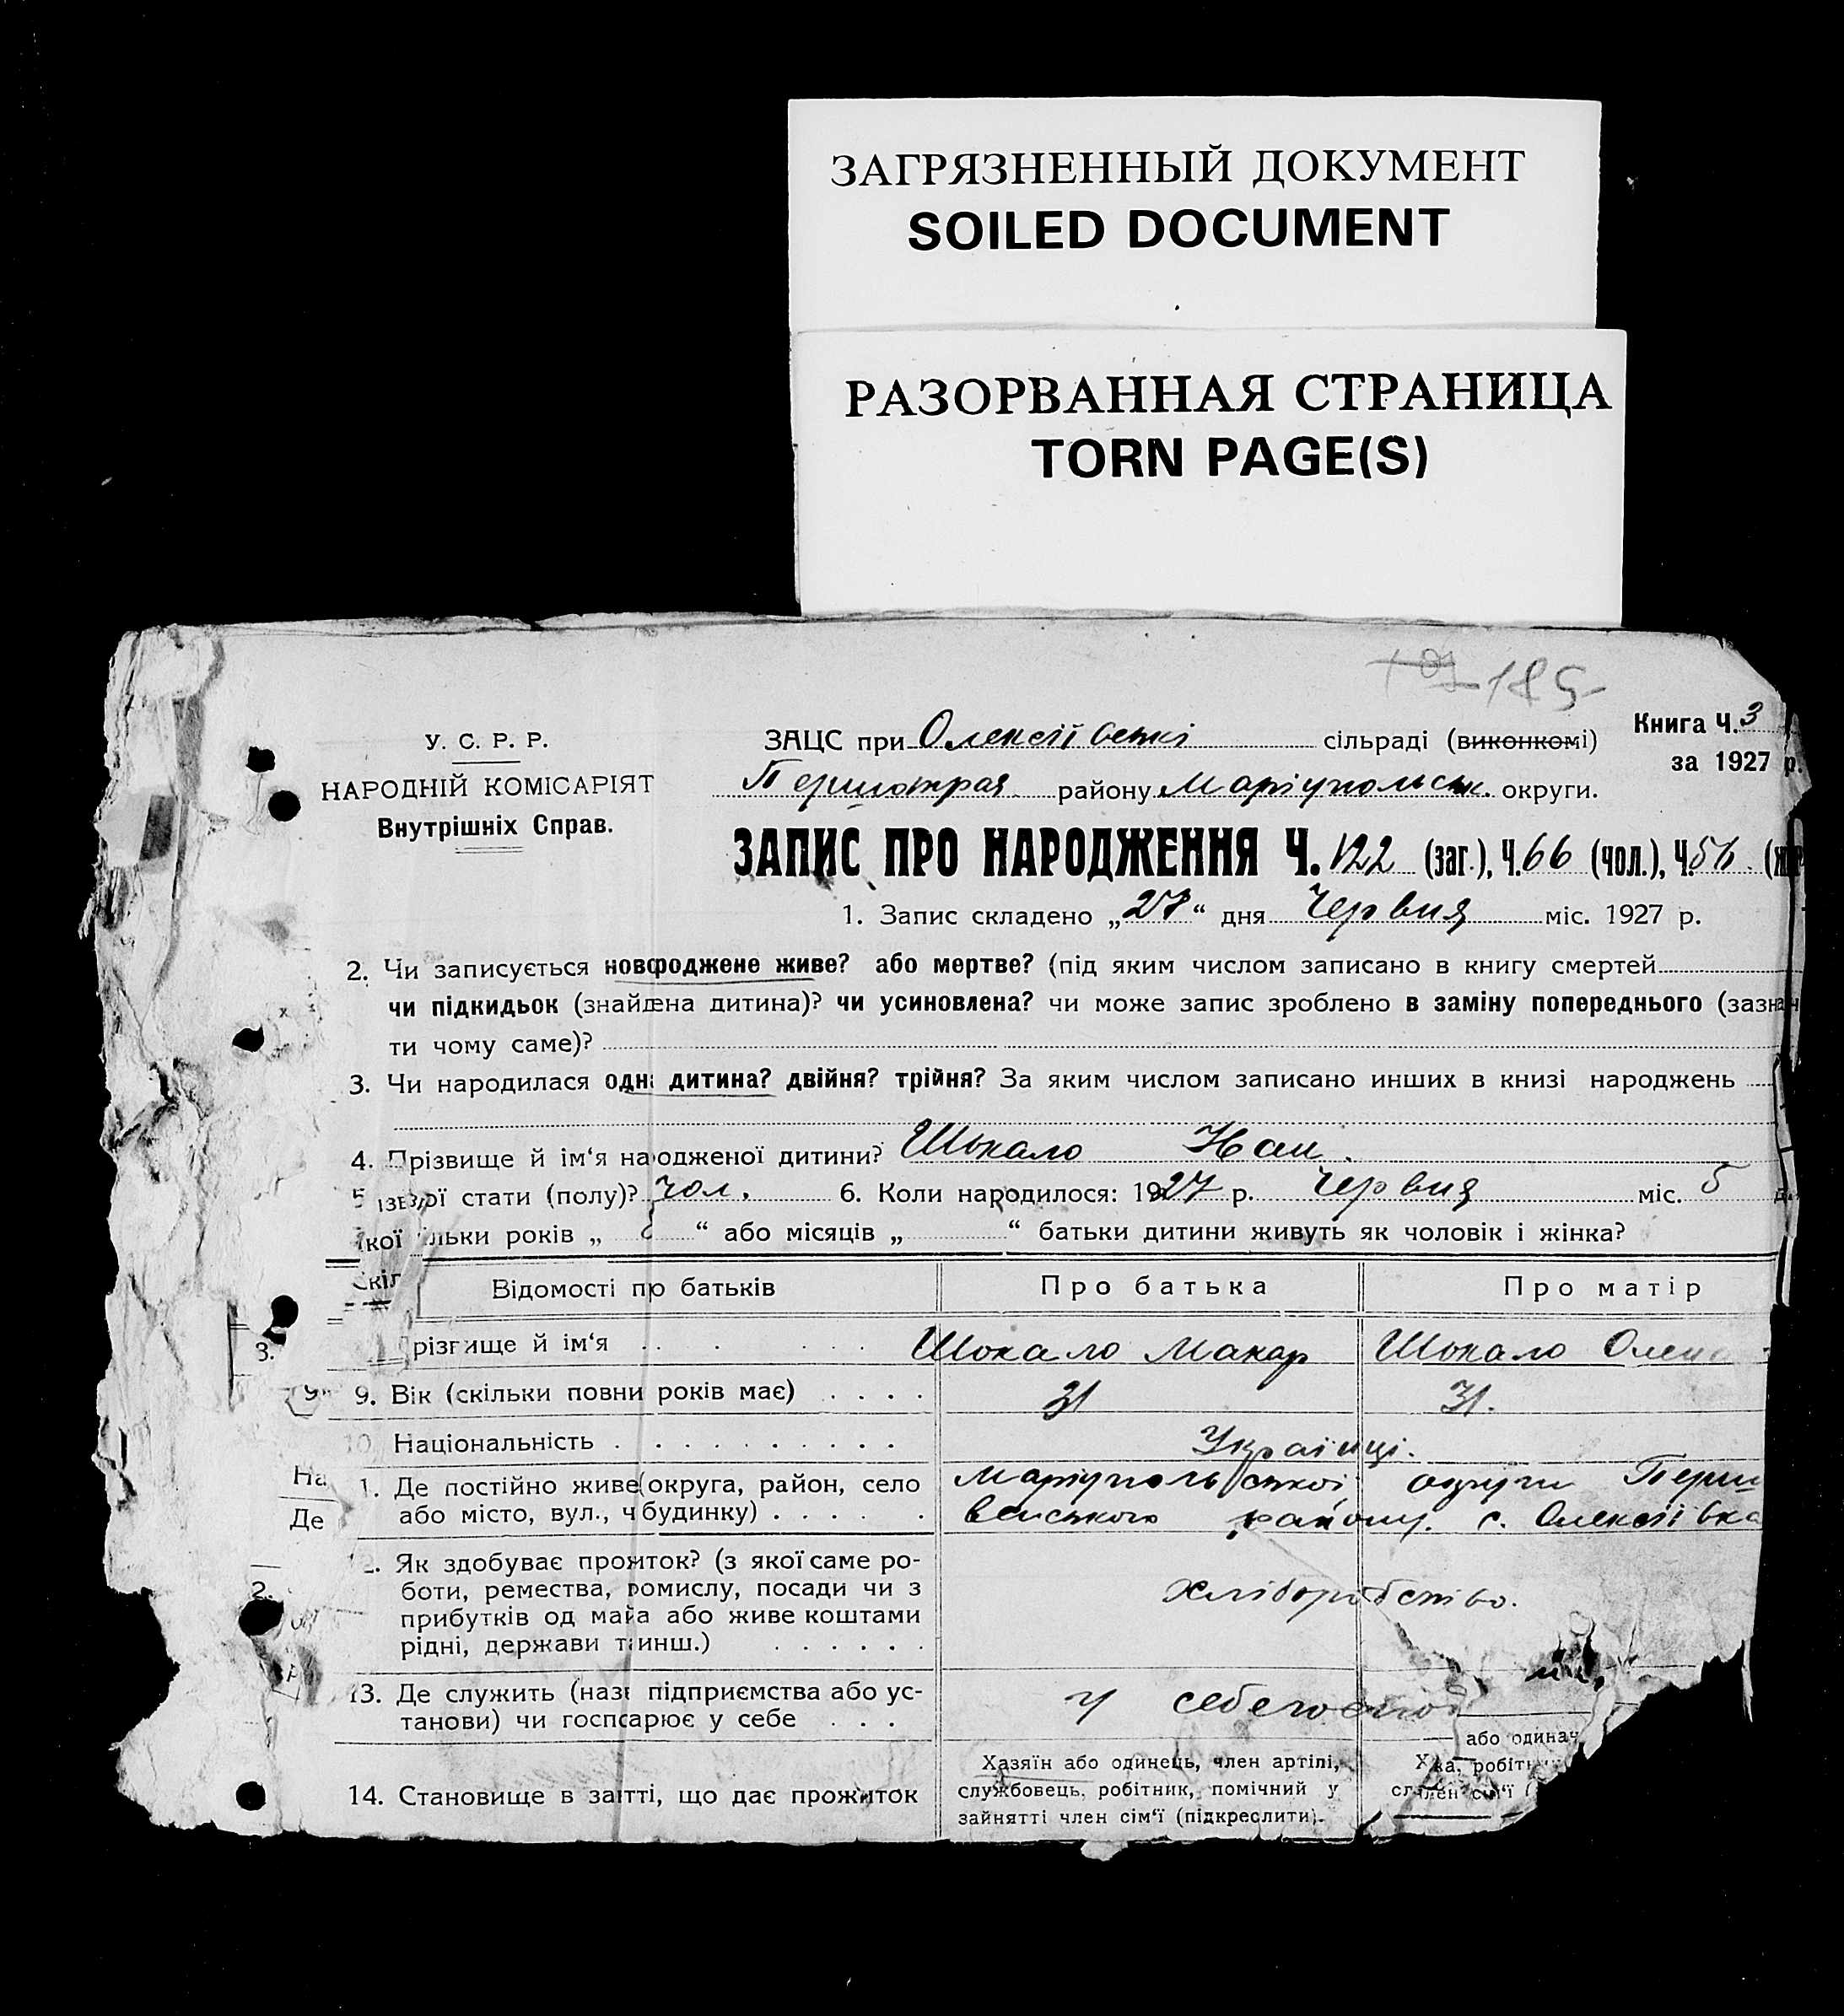 ЗАГРЯЗНЕННЫЙ ДОКУМЕНТ
SOILED DOCUMENT
РАЗОРВАННАЯ СТРАНИЦА
TORN PAGE(S)
185
У. С. Р. Р.
НАРОДНІЙ КОМІСАРІЯТ
Внутрішніх Справ.
Книга Ч. 3
за 1927 р.
ЗАЦС при Олексіївскі сільраді (виконкомі)
району Маріупольськ. округи.
ЗАПИС ПРО НАРОДЖЕННЯ Ч. 122 (заг.), Ч. 66 (чол.), Ч. 56
1. Запис складено „27“ дня Червня міс. 1927 р.
2. Чи записується новороджене живе? або мертве? (під яким числом записано в книгу смертей
чи підкидьок (знайдена дитина)? чи усиновлена? чи може запис зроблено в заміну попереднього
ти чому саме)?
3. Чи народилася одна дитина? двійня? трійня? За яким числом записано инших в книзі народжень
4. Прізвище й ім‘я народженої дитини? Шокало
стати (полу)? чол. 6. Коли народилося: 1927 р. Червня міс. 5
льки років „ “ або місяців „ “ батьки дитини живуть як чоловік і жінка?
Відомості про батьків Про батька Про матір
різвище й ім‘я Шокало Макар Шокало
9. Вік (скільки повни років має) 31 31.
10. Національність Українці.
1. Де постійно живе (округа, район, село Маріупольської округи Перш
або місто, вул., ч будинку) венського району. с. Олексіївка
Як здобуває прожиток? (з якої саме ро-
боти, ремества, ромислу, посади чи з
прибутків од майна або живе коштами Хліборобство.
рідні, держави та инш.)
13. Де служить (назва підприємства або ус-
танови) чи господарює у себе У себе
14. Становище в занятті, що дає прожиток
Хазяїн або одинець, член артілі,
службовець, робітник, помічний у
зайнятті член сім‘ї (підкреслити).
або одинач
робітн
член сім‘ї